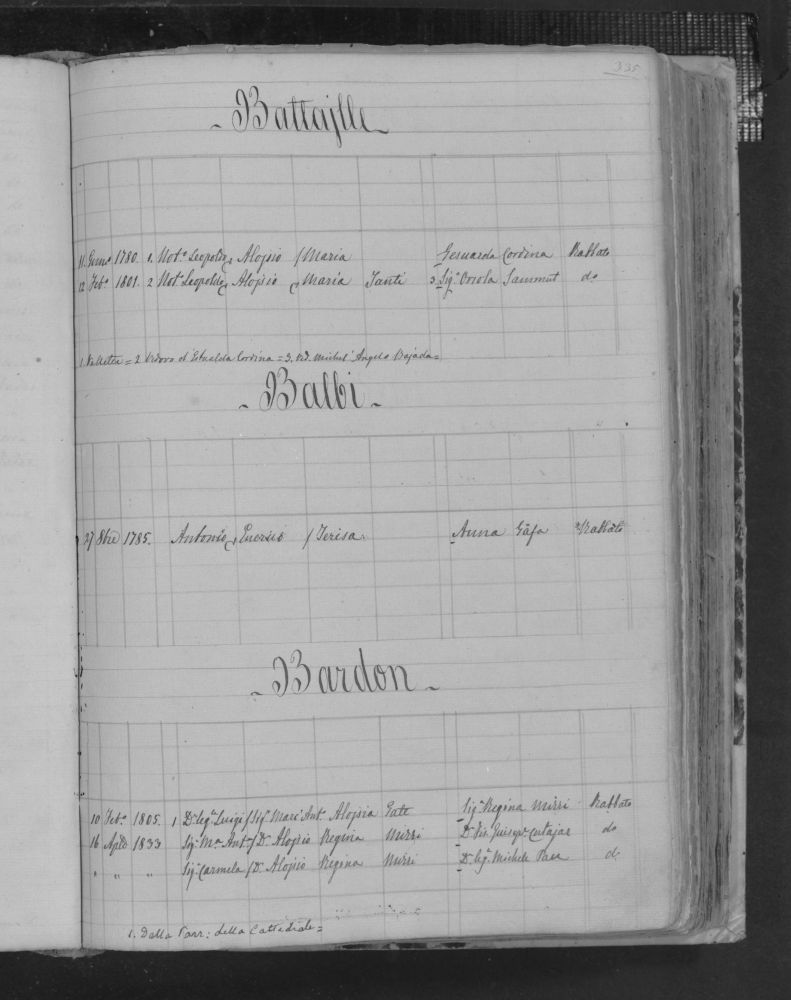 335
- Battajlle -
11. Genn.o 1780. 1. Not.o Leopoldo Aloysio / Maria Gesuarda Cordina Rabbato
12 Feb.o 1801. 2 Not.o Leopoldo Aloysio Maria Santi 3. Sig.a Orsola Sammut do
1. Valletta = 2 Vedovo di Cordina = 3. Ved. Michel' Angelo Bajada =
- Balbi -
27 8bre 1785. Antonio / Teresa Anna Gafa Rabbato
- Bardon -
10 Feb.o 1805. 1 Dr. Sig.r Luigi / Sig.r Marc' Ant.o Aloysia Gatt Sig.a Regina Mizzi Rabbato
16 Aple 1833 Sig.a Ma. Ant.a / Dr. Aloysio Regina Mizzi Dr. Giusep.e Cutajar do
" " " Sig.a Carmela / Dr. Aloysio Regina Mizzi Dr. Sig.r Michele Pace do
1. Dalla Parr: della Cattedrale =